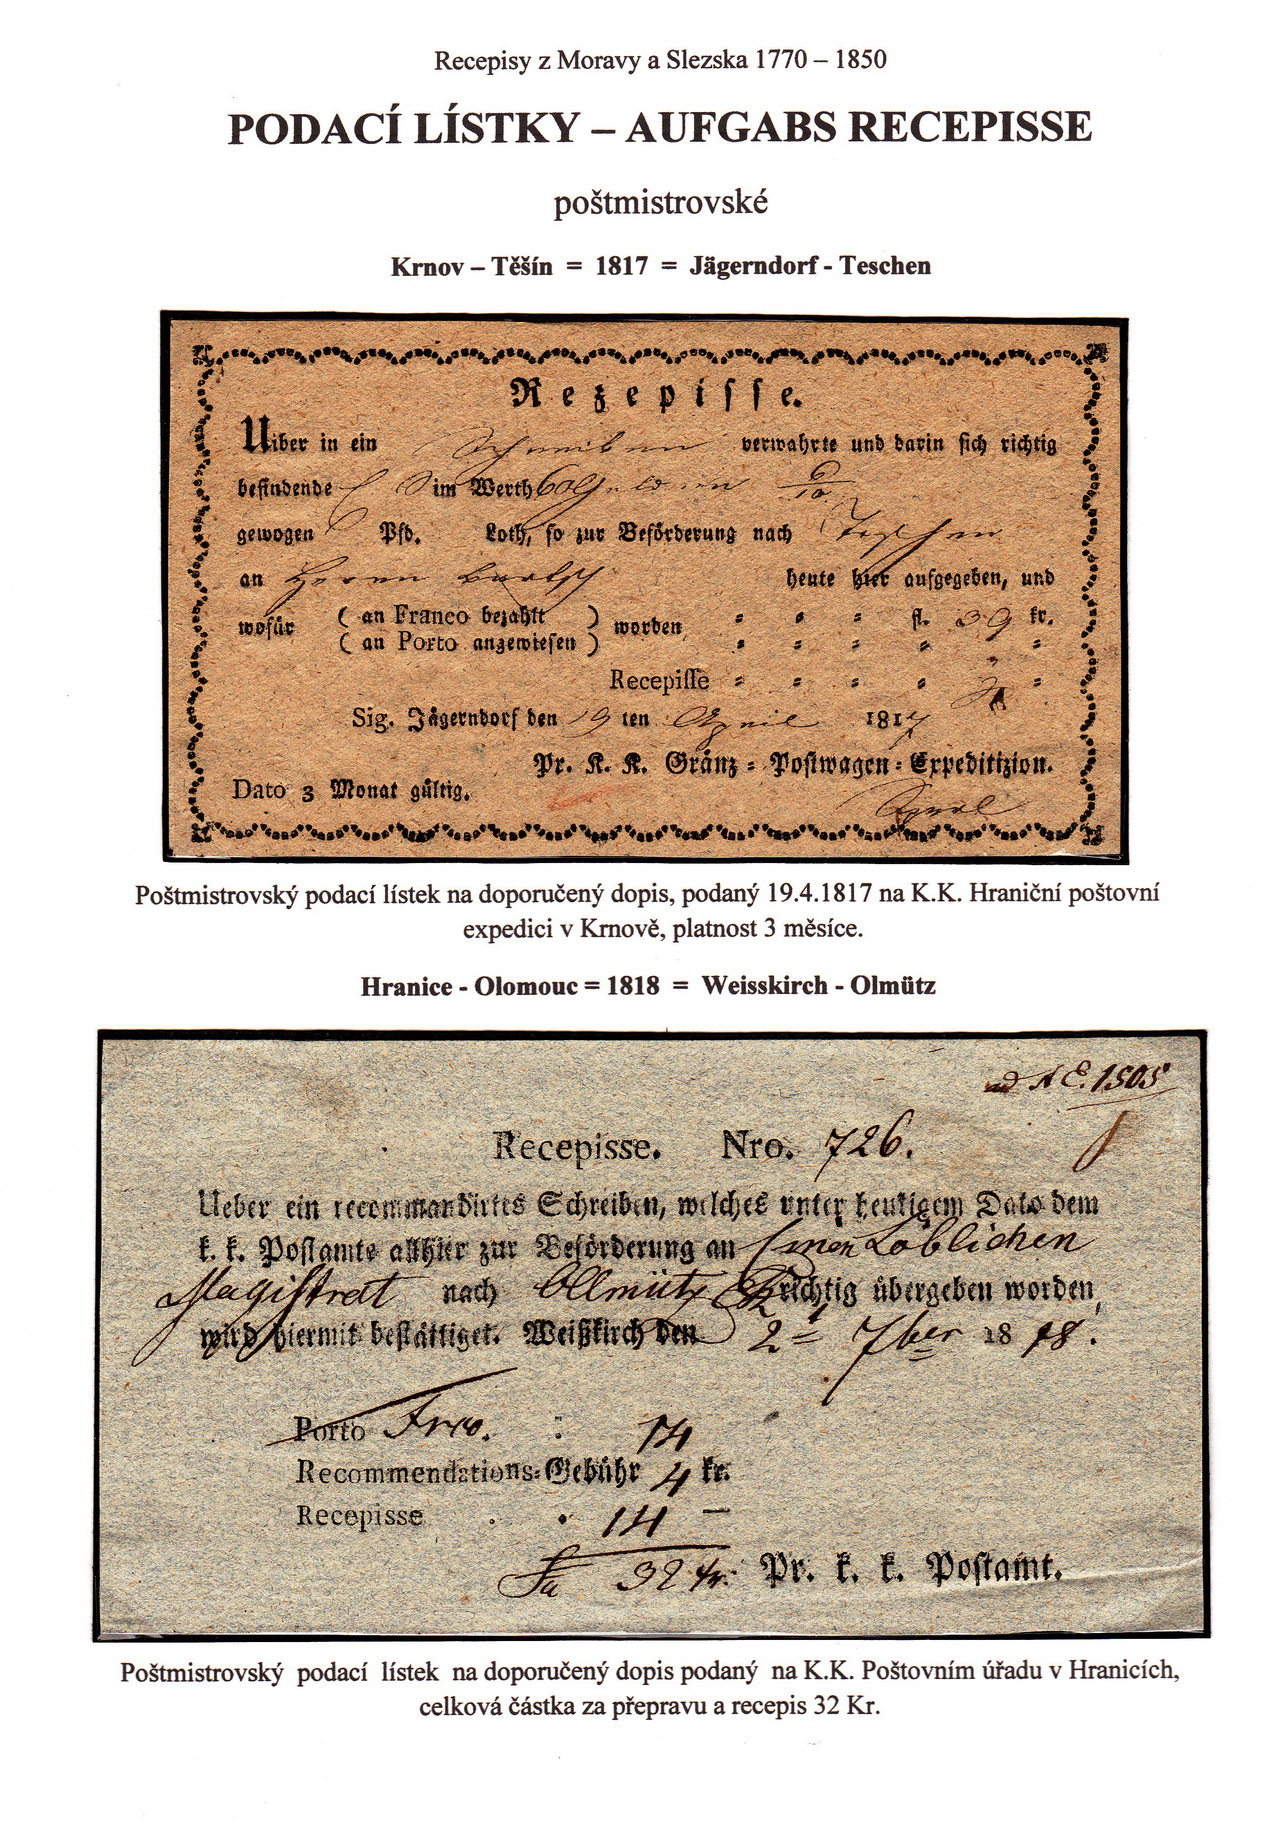 Recepisy z Moravy a Slezska 1770 – 1850
PODACÍ LÍSTKY – AUFGABS RECEPISSE
poštmistrovské
Krnov – Těšín = 1817 = Jägerndorf - Teschen
Rezepisse.
Uiber in ein Schreiben verwahrte und darin sich richtig
befindende im Werth 60 Gulden
gewogen Pfd. Loth, so zur Beförderung nach Teschen
an Herrn heute hier aufgegeben, und
wofür ( an Franco bezahlt ) worden fl. 39 kr.
( an Porto angewiesen )
Recepisse
Sig. Jägerndorf den 19 ten April 1817
Pr. K. K. Gränz = Postwagen = Expeditizion.
Dato 3 Monat gültig.
Poštmistrovský podací lístek na doporučený dopis, podaný 19.4.1817 na K.K. Hraniční poštovní
expedici v Krnově, platnost 3 měsíce.
Hranice - Olomouc = 1818 = Weisskirch - Olmütz
ad N E. 1505
Recepisse. Nro. 726.
Ueber ein recommandirtes Schreiben, welches unter heutigem Dato dem
k. k. Postamte allhier zur Beförderung an Einen Löblichen
Magistrat nach Ollmütz richtig übergeben worden,
wird hiermit bestättiget. Weißkirch den 2t 7ber 1818.
Porto Frco. 14
Recommendations=Gebühr 4 kr.
Recepisse 14 —
Sa 32 kr. Pr. k. k. Postamt.
Poštmistrovský podací lístek na doporučený dopis podaný na K.K. Poštovním úřadu v Hranicích,
celková částka za přepravu a recepis 32 Kr.